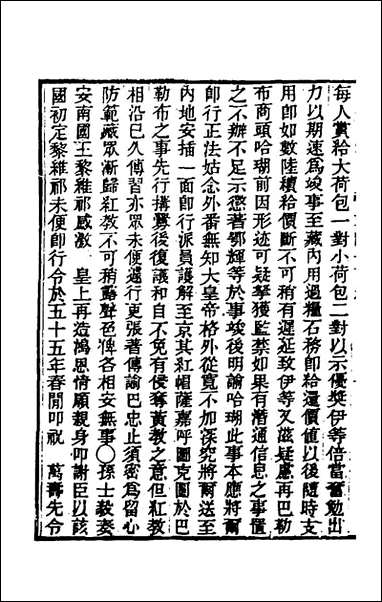 每人賞給大荷包一對小荷包二對以示優獎伊等倍當奮勉出
力以期速為竣事至藏內用過糧石務即給還價值以後隨時支
用卽如數陸續給價斷不可稍有遲延致伊等又滋疑慮再巴勒
布商頭哈瑚前因形迹可疑拏獲監禁如果有潛通信息之事置
之不辦不足示懲著鄂輝等於事竣後明諭哈瑚此事本應將爾
卽行正法姑念外番無知大皇帝格外從寬不加深究將爾送至
內地安插一面卽行派員護解至京其紅帽薩嘉呼圖克圖於巴
勒布之事先行搆釁後復議和自不免有侵奪黃教之意但紅教
相沿已久傳習亦眾未便遽行更張著傳諭巴忠止須密為留心
防範藏眾漸歸紅教不可稍露聲色俾各相安無事○孫士毅奏
安南國王黎維祁感激　皇上再造鴻恩情願親身叩謝臣以該
國初定黎維祁未便卽行令於五十五年春閒叩祝　萬壽先令